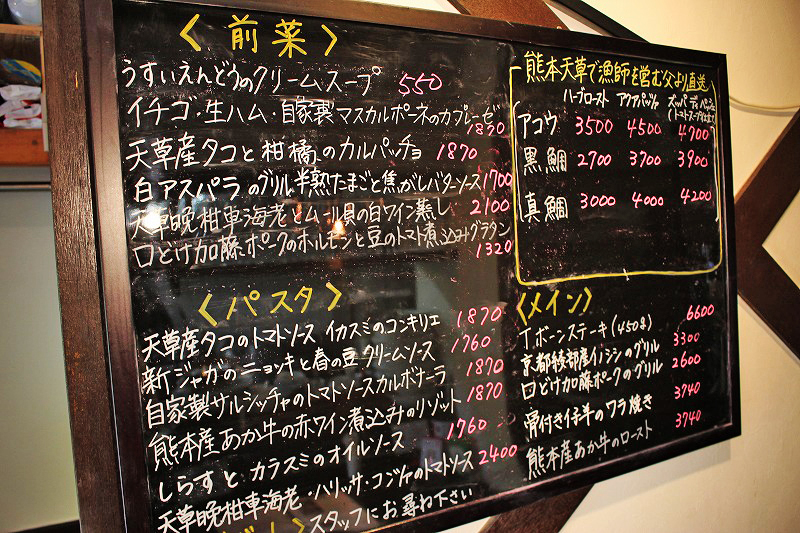 〈前菜〉
うすいえんどうのクリームスープ 550
イチゴ・生ハム・自家製マスカルポーネのカプレーゼ 1870
天草産タコと柑橘のカルパッチョ 1870
白アスパラのグリル半熟たまごと焦がしバターソース 1700
天草晩柑車海老とムール貝の白ワイン蒸し 2100
口どけ加藤ポークのホルモンと豆のトマト煮込みグラタン 1320
〈パスタ〉
天草産タコのトマトソース イカスミのコンキリエ 1870
新ジャガのニョッキと春の豆クリームソース 1760
自家製サルシッチャのトマトソースカルボナーラ 1870
熊本産あか牛の赤ワイン煮込みのリゾット 1870
しらすとカラスミのオイルソース 1760
天草晩柑車海老・ハリッサ・コヅケのトマトソース 2400
スタッフにお尋ね下さい
熊本天草で漁師を営む父より直送
ハーブロースト アクアパッツァ ズッパディペッシェ
(トマトスープ仕立て)
アコウ 3500 4500 4700
黒鯛 2700 3700 3900
真鯛 3000 4000 4200
〈メイン〉
Tボーンステーキ(450g) 6600
京都綾部産イノシシのグリル 3300
口どけ加藤ポークのグリル 2600
骨付き仔牛のワラ焼き 3740
熊本産あか牛のロースト 3740